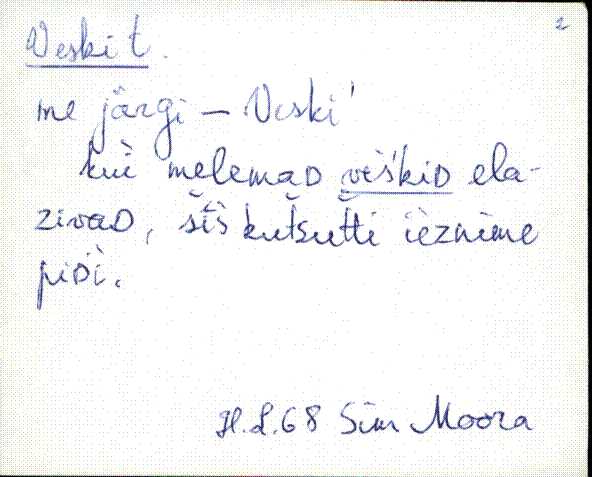 2
Veski t.
me järgi – Veski'
kui mèlemaD vèśkiD ela-
zivaD, śīś kutsutti ièznime
piDi.
H.L. 68 Sim Moora